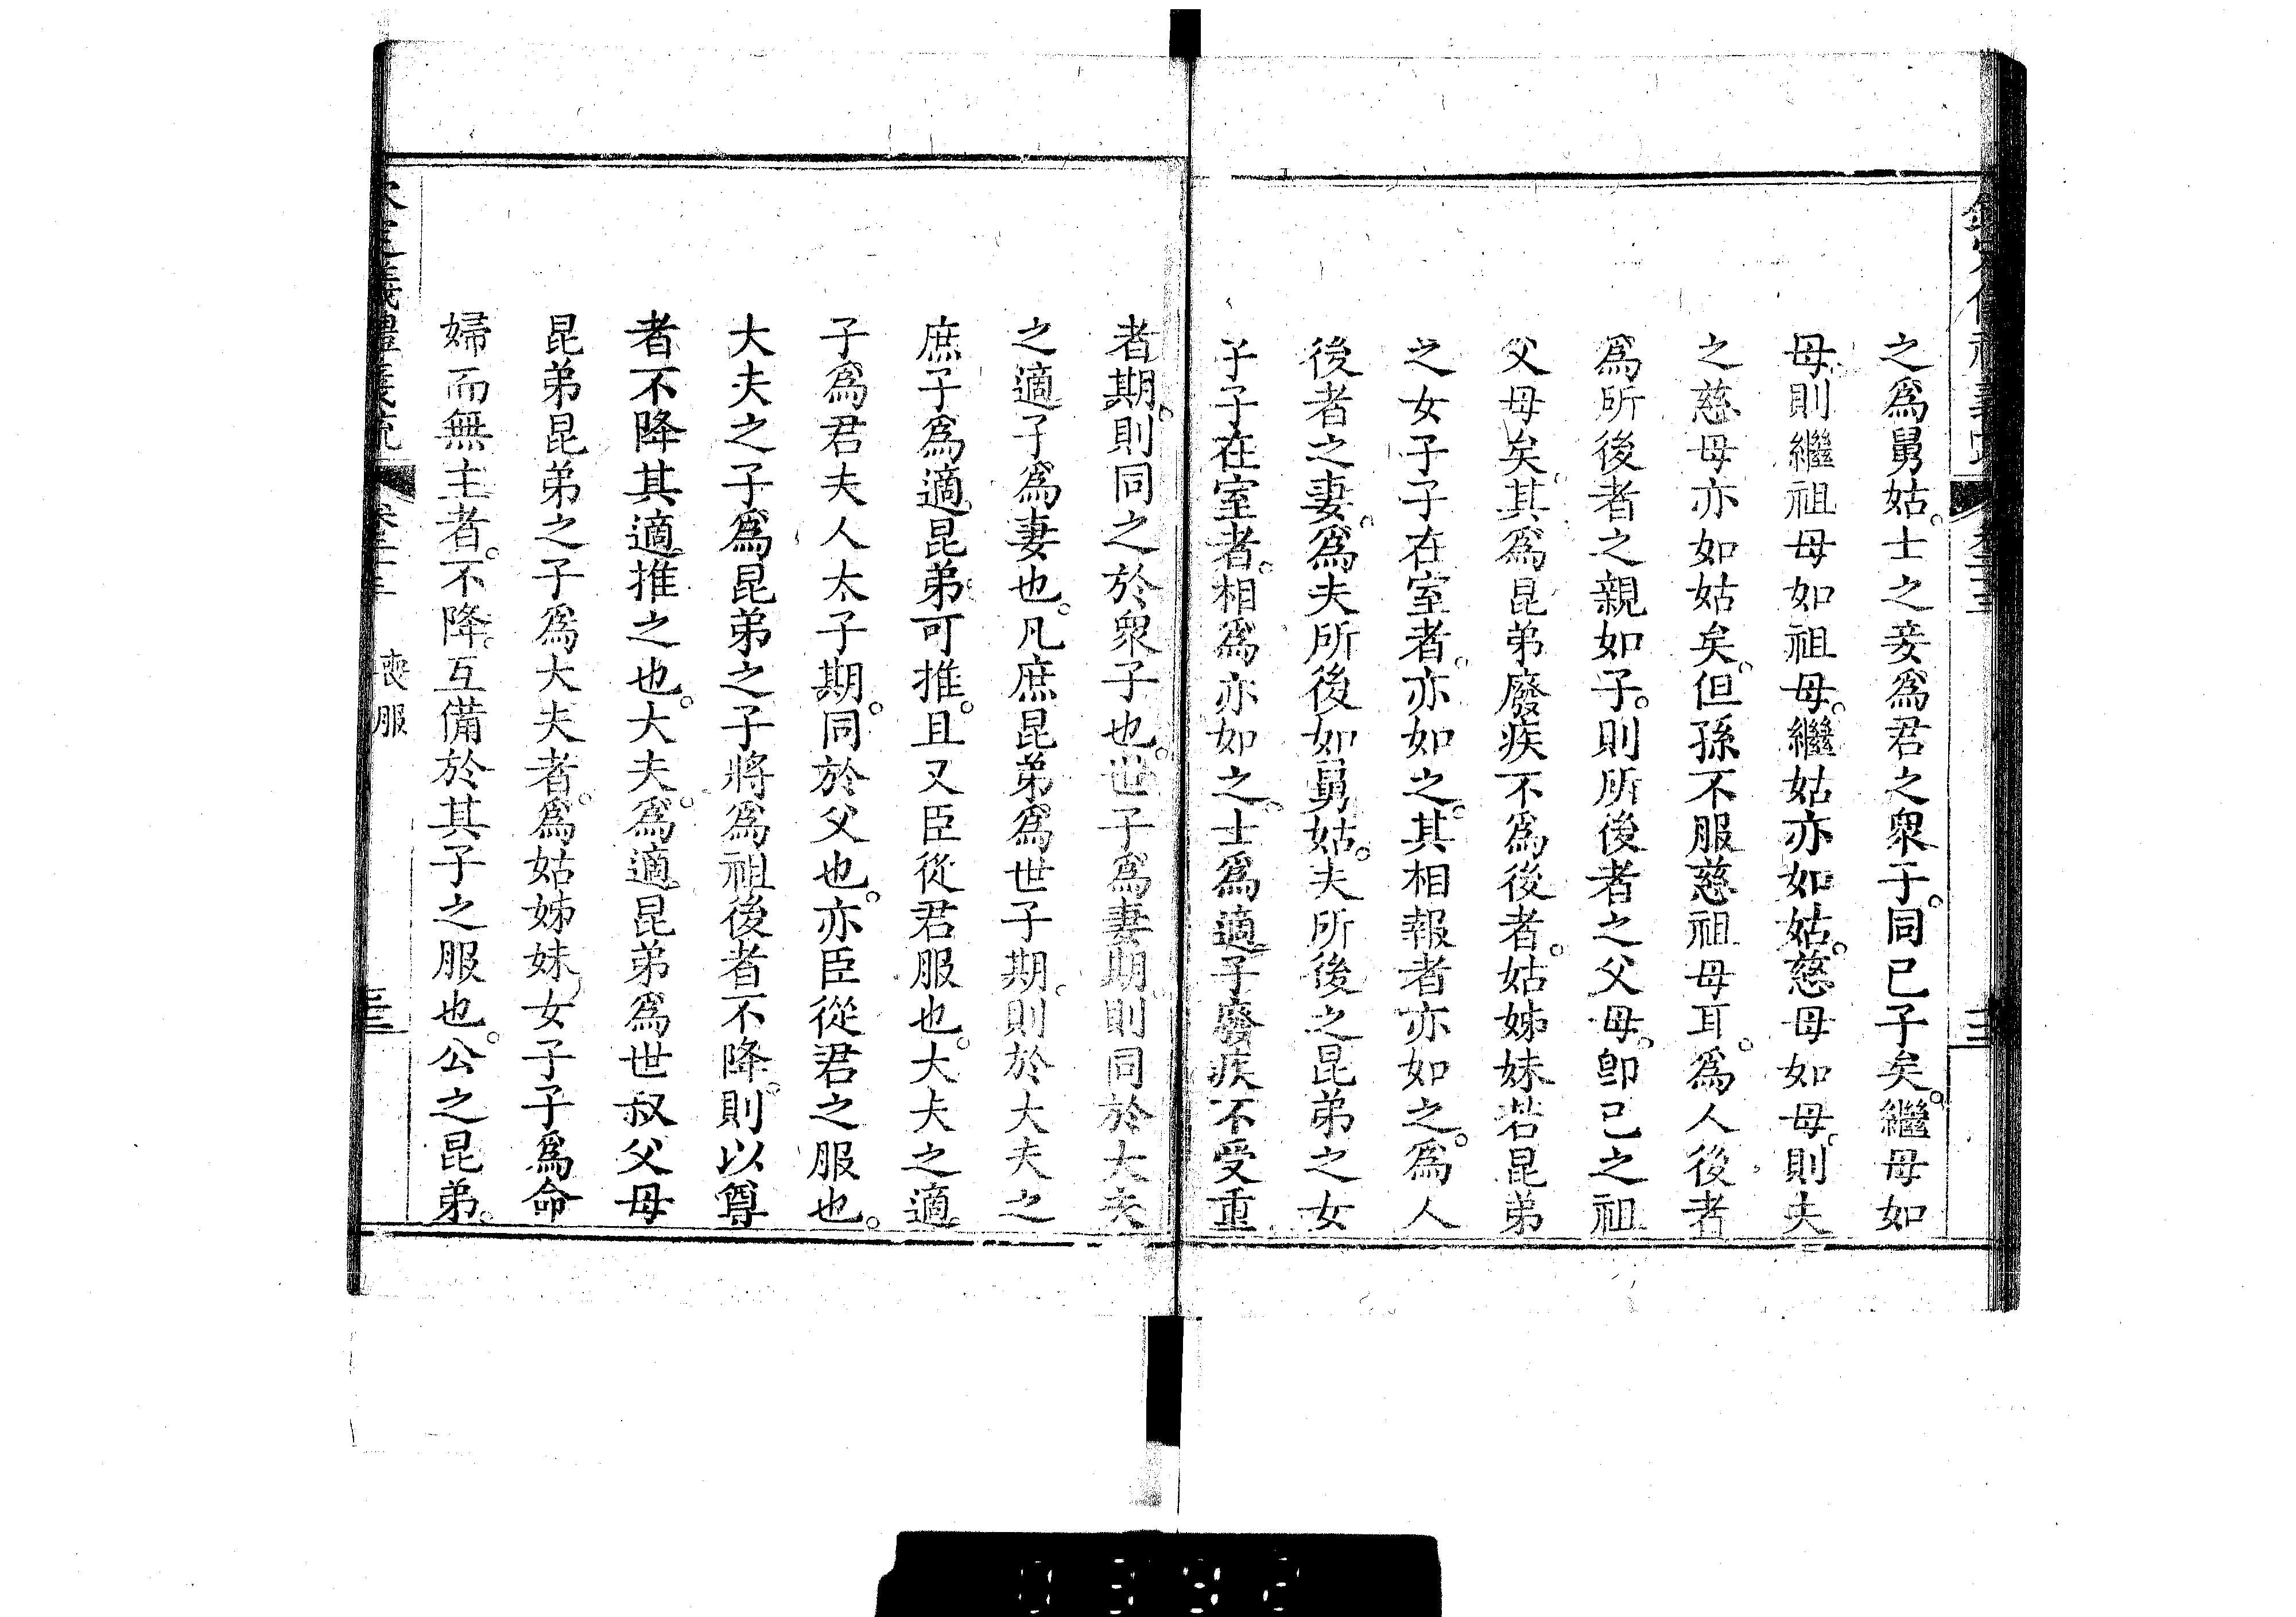 之爲舅姑。士之妾爲君之衆子。同已子矣。繼母如
母。則繼祖母如祖母。繼姑亦如姑。慈母如母。則夫
之慈母亦如姑矣。但孫不服慈祖母耳。爲人後者
爲所後者之親如子。則所後者之父母。卽已之祖
父母矣。其爲昆弟廢疾不爲後者。姑姊妹若昆弟
之女子子在室者。亦如之。其相報者亦如之。爲人
後者之妻。爲夫所後如舅姑。夫所後之昆弟之女
子子在室者。相爲亦如之。士爲適子廢疾不受重
者期。則同之於衆子也。世子爲妻期。則同於大夫
之適子爲妻也。凡庶昆弟爲世子期。則於大夫之
庶子爲適昆弟可推。且又臣從君服也。大夫之適
子爲君夫人太子期。同於父也。亦臣從君之服也。
大夫之子爲昆弟之子將爲祖後者不降。則以尊
者不降其適推之也。大夫爲適昆弟爲世叔父母
昆弟昆弟之子爲大夫者。爲姑姊妹女子子爲命
婦而無主者。不降。互備於其子之服也。公之昆弟。
喪服